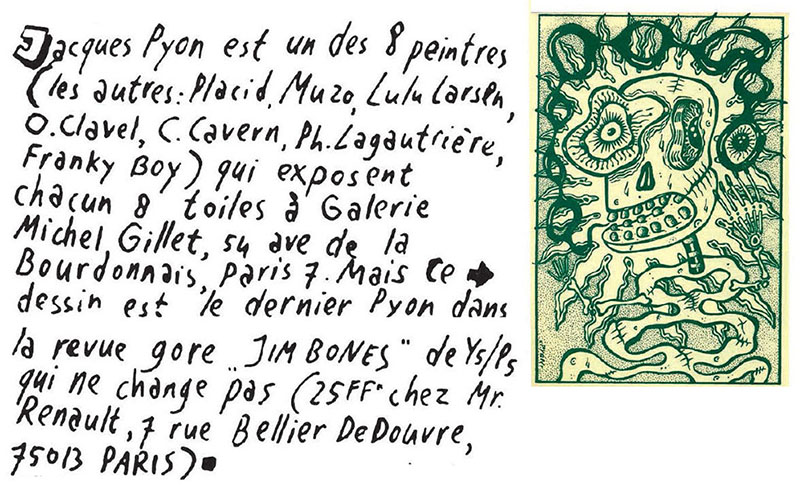 Jacques Pyon est un des 8 peintres
(les autres: Placid, Muzo, Lulu Larsen,
O.Clavel, C.Cavern, Ph.Lagautrière,
Franky Boy) qui exposent
chacun 8 toiles à Galerie
Michel Gillet, 54 ave de la
Bourdonnais, Paris 7. Mais ce ➡
dessin est le dernier Pyon dans
la revue gore "JIM BONES" de Ys/Ps
qui ne change pas (25FF chez Mr.
Renault, 7 rue Bellier DeDouvre,
75013 PARIS).